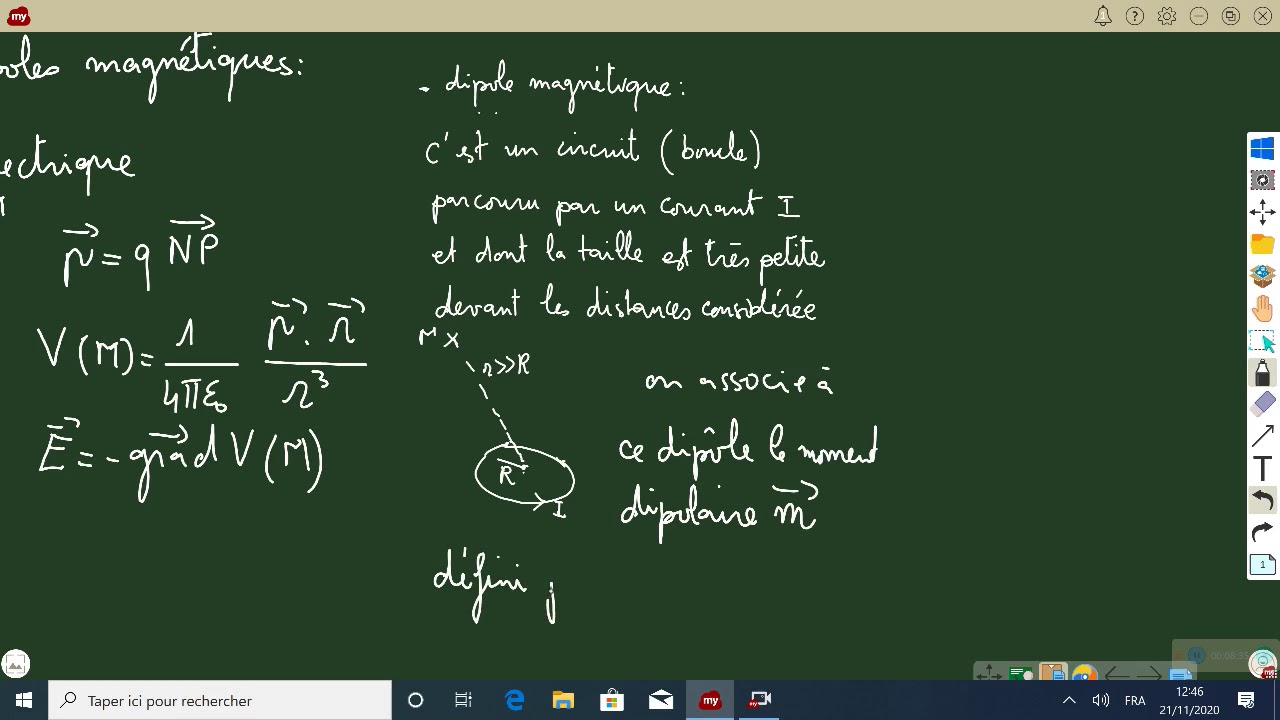 my
oles magnétiques:
ectrique
p⃗ = q NP⃗
V(M) = 1/4πε₀ p⃗.r⃗/r³
E⃗ = - grad⃗ V(M)
- dipole magnétique:
c'est un circuit (boucle)
parcouru par un courant I
et dont la taille est très petite
devant les distances considérée
M X
r>>R
R
I
on associe à
ce dipôle le moment
dipolaire m⃗
défini
T
1
00:08:35
Taper ici pour rechercher
my
my
FRA
12:46
21/11/2020